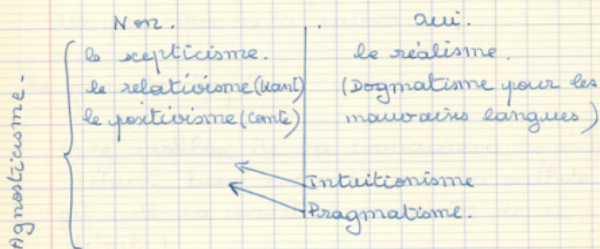 Non. . oui.
le scepticisme. le réalisme.
le relativisme (Kant) (Dogmatisme pour les
le positivisme (Comte) mauvaises langues)
Agnosticisme.
Intuitionisme
Pragmatisme.